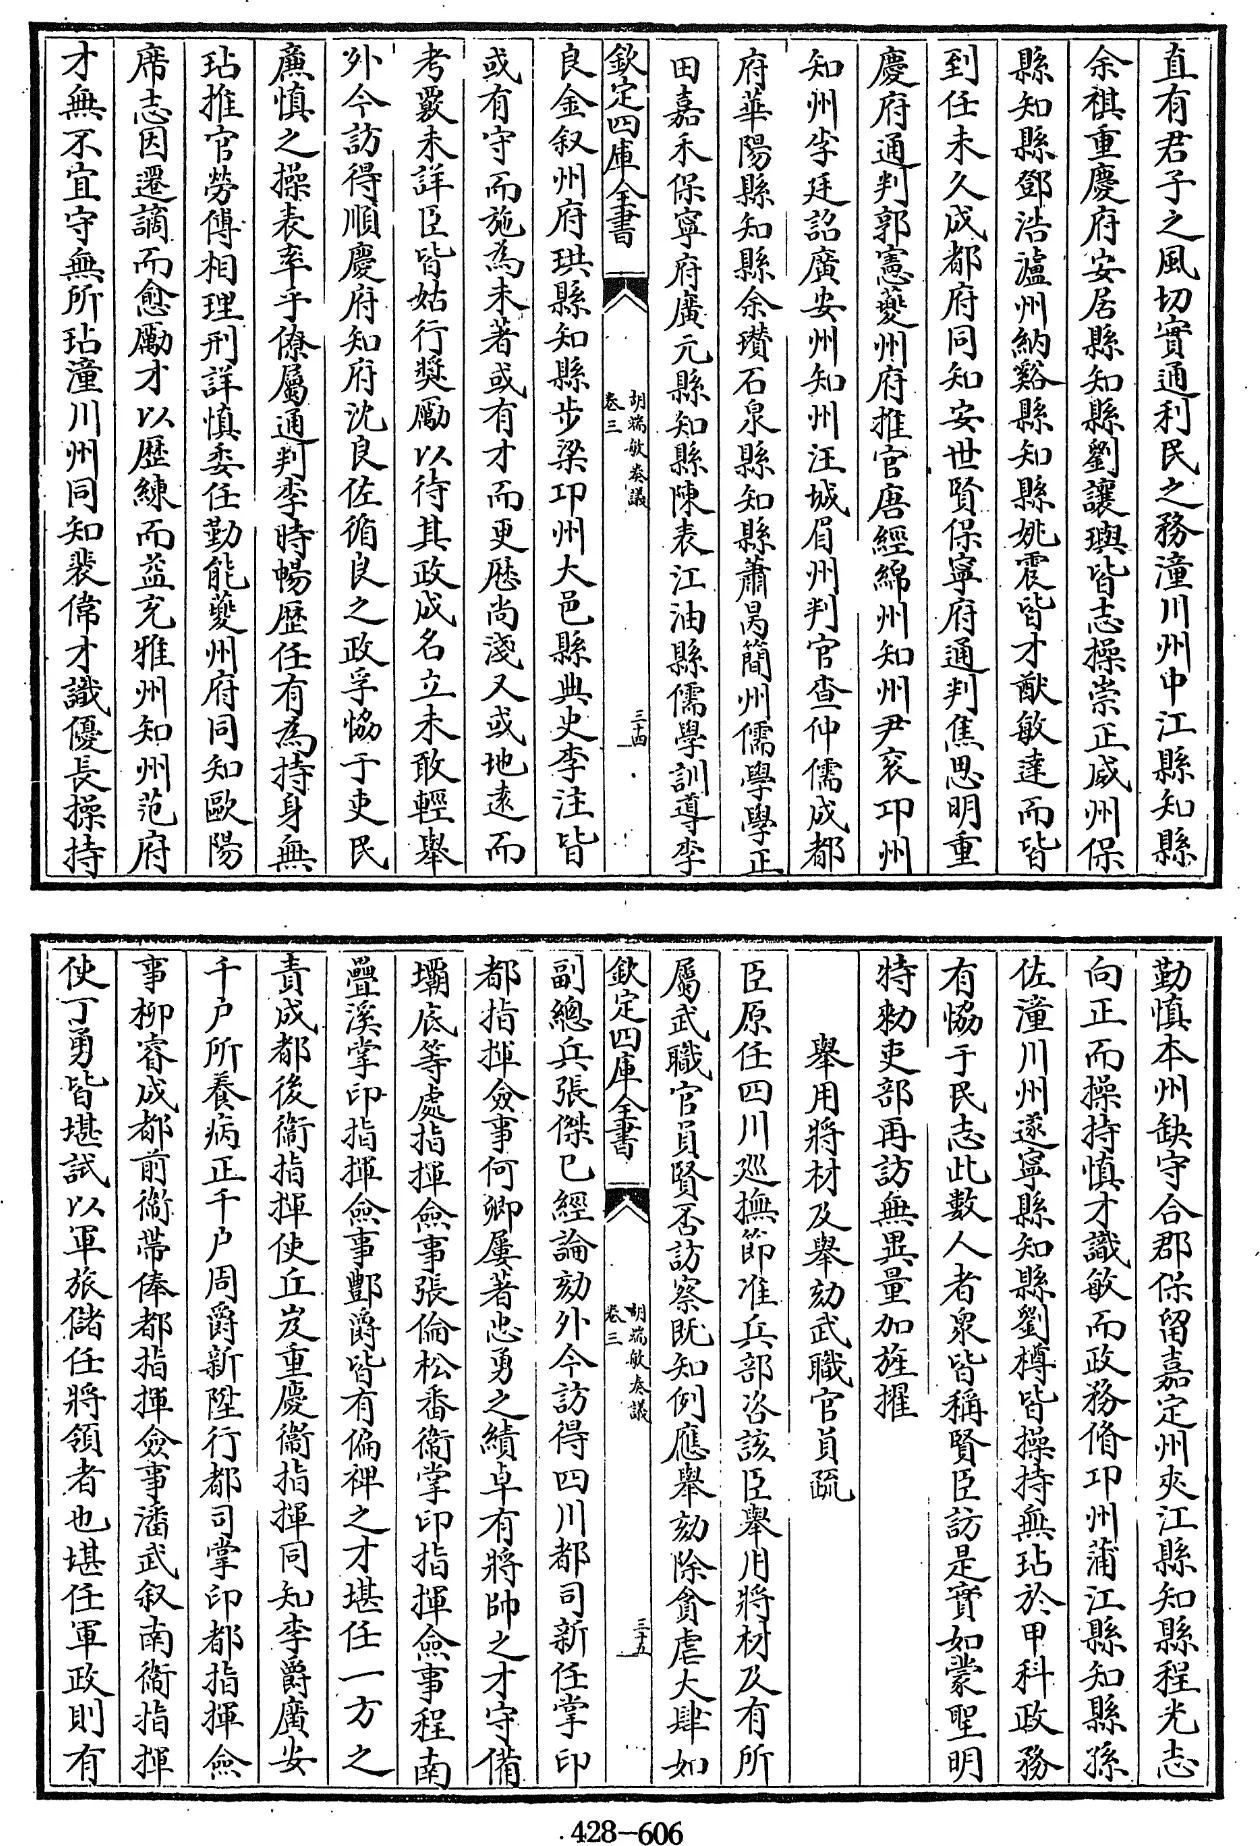 直有君子之風切實通利民之務潼川州中江縣知縣
余祺重慶府安居縣知縣劉讓輿皆志操崇正威州保
縣知縣鄧浩瀘州納谿縣知縣姚震皆才猷敏達而皆
到任未久成都府同知安世賢保寧府通判焦思明重
慶府通判郭憲夔州府推官唐經綿州知州尹衮邛州
知州李廷詔廣安州知州汪城眉州判官查仲儒成都
府華陽縣知縣余瓚石泉縣知縣蕭昺簡州儒學學正
田嘉禾保寧府廣元縣知縣陳表江油縣儒學訓導李
欽定四庫全書
胡端敏奏議
卷三
三十四
良金叙州府珙縣知縣步梁邛州大邑縣典史李注皆
或有守而施為未著或有才而更歴尚淺又或地遠而
考覈未詳臣皆姑行奬勵以待其政成名立未敢輕舉
外今訪得順慶府知府沈良佐循良之政孚恊于吏民
廉慎之操表率乎僚屬通判李時暢歴任有為持身無
玷推官勞傅相理刑詳慎委任勤能夔州府同知歐陽
席志因遷謫而愈勵才以歴練而益充雅州知州范府
才無不宜守無所玷潼川州同知裴偉才識優長操持
勤慎本州缺守合郡保留嘉定州夾江縣知縣程光志
向正而操持慎才識敏而政務脩邛州蒲江縣知縣孫
佐潼川州遂寧縣知縣劉樽皆操持無玷於甲科政務
有恊于民志此數人者衆皆稱賢臣訪是實如蒙聖明
特勅吏部再訪無異量加旌擢
舉用將材及舉劾武職官員疏
臣原任四川廵撫節准兵部咨該臣舉用將材及有所
屬武職官員賢否訪察既知例應舉劾除貪虐大肆如
欽定四庫全書
胡端敏奏議
卷三
三十五
副總兵張傑已經論劾外今訪得四川都司新任掌印
都指揮僉事何卿屢著忠勇之績卓有將帥之才守備
壩底等處指揮僉事張倫松番衞掌印指揮僉事程南
疊溪掌印指揮僉事酆爵皆有偏禆之才堪任一方之
責成都後衞指揮使丘岌重慶衞指揮同知李爵廣安
千户所養病正千户周爵新陞行都司掌印都指揮僉
事柳睿成都前衞帶俸都指揮僉事潘武叙南衞指揮
使丁勇皆堪試以軍旅儲任將領者也堪任軍政則有
428-606